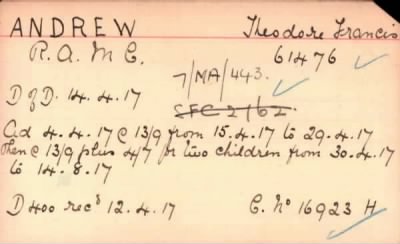 ANDREW Theodore Francis
R.A.M.C. 61476
7/MA/443.
D of D. 14.4.17
SFC 2/62.
Ad 4.4.17 @ 13/9 from 15.4.17 to 29.4.17
then @ 13/9 plus 4/7 for two children from 30.4.17
to 14.8.17
D 400 recd 12.4.17 C. No 16923 H